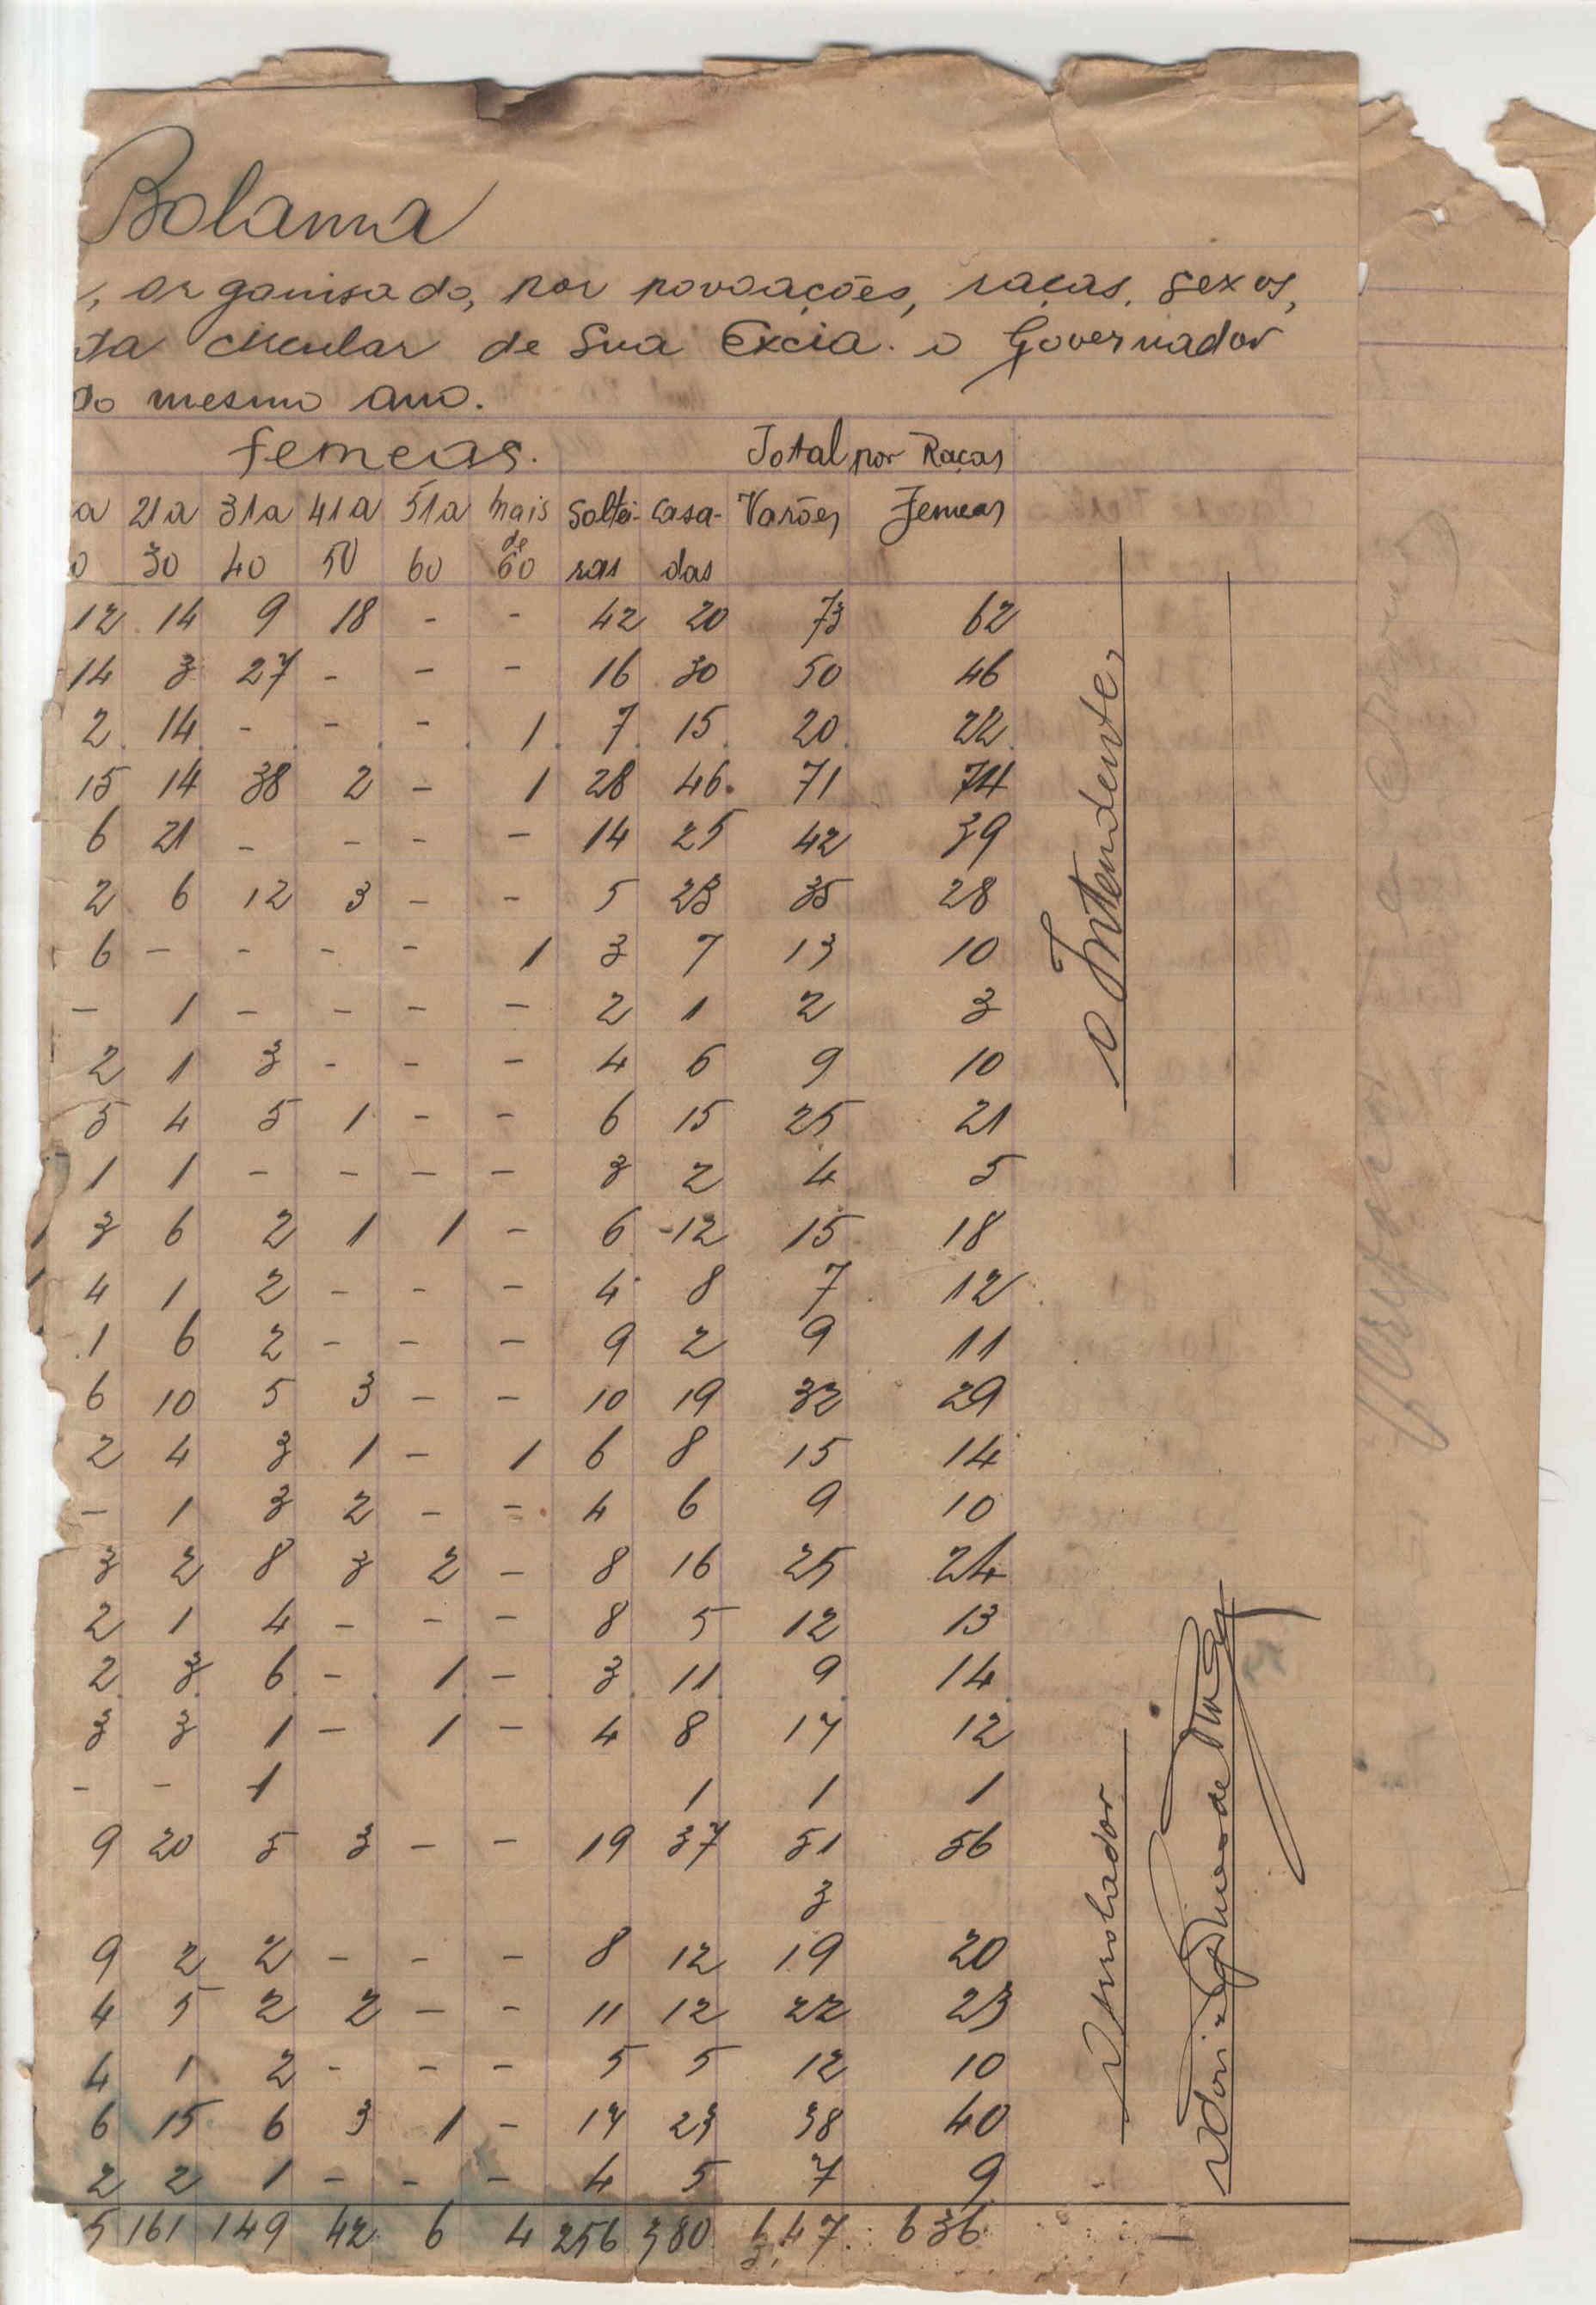 Bolama
, organisado, por povoações, raças, sexos,
da circular de Sua Excia. o Governador
do mesmo ano.
femeas. Total por Raças
a 21a 31a 41a 51a mais Soltei- Casa- Varões Femeas
0 30 40 50 60 de 60 ras das
12 14 9 18 - - 42 20 73 62
14 3 27 - - - 16 30 50 46
2 14 - - - 1 7 15 20 22
15 14 38 2 - 1 28 46 71 74
6 21 - - - - 14 25 42 39
2 6 12 3 - - 5 23 35 28
6 - - - - 1 3 7 13 10
- 1 - - - - 2 1 2 3
2 1 3 - - - 4 6 9 10
5 4 5 1 - - 6 15 25 21
1 1 - - - - 3 2 4 5
1 3 6 2 1 1 - 6 -12 15 18
1 4 1 2 - - - 4 8 7 12
1 6 2 - - - 9 2 9 11
6 10 5 3 - - 10 19 32 29
2 4 3 1 - 1 6 8 15 14
- 1 3 2 - - 4 6 9 10
3 2 8 3 2 - 8 16 25 24
2 1 4 - - - 8 5 12 13
2 3 6 - 1 - 3 11 9 14
3 3 1 - 1 - 4 8 17 12
- - 1 1 1 1
9 20 5 3 - - 19 37 51 56
3
9 2 2 - - - 8 12 19 20
4 5 2 2 - - 11 12 22 23
4 1 2 - - - 5 5 12 10
6 15 6 3 1 - 17 23 38 40
2 2 1 - - - 4 5 7 9
5 161 149 42 6 4 256 380 647 636
o Intendente,
o Arrolador
de